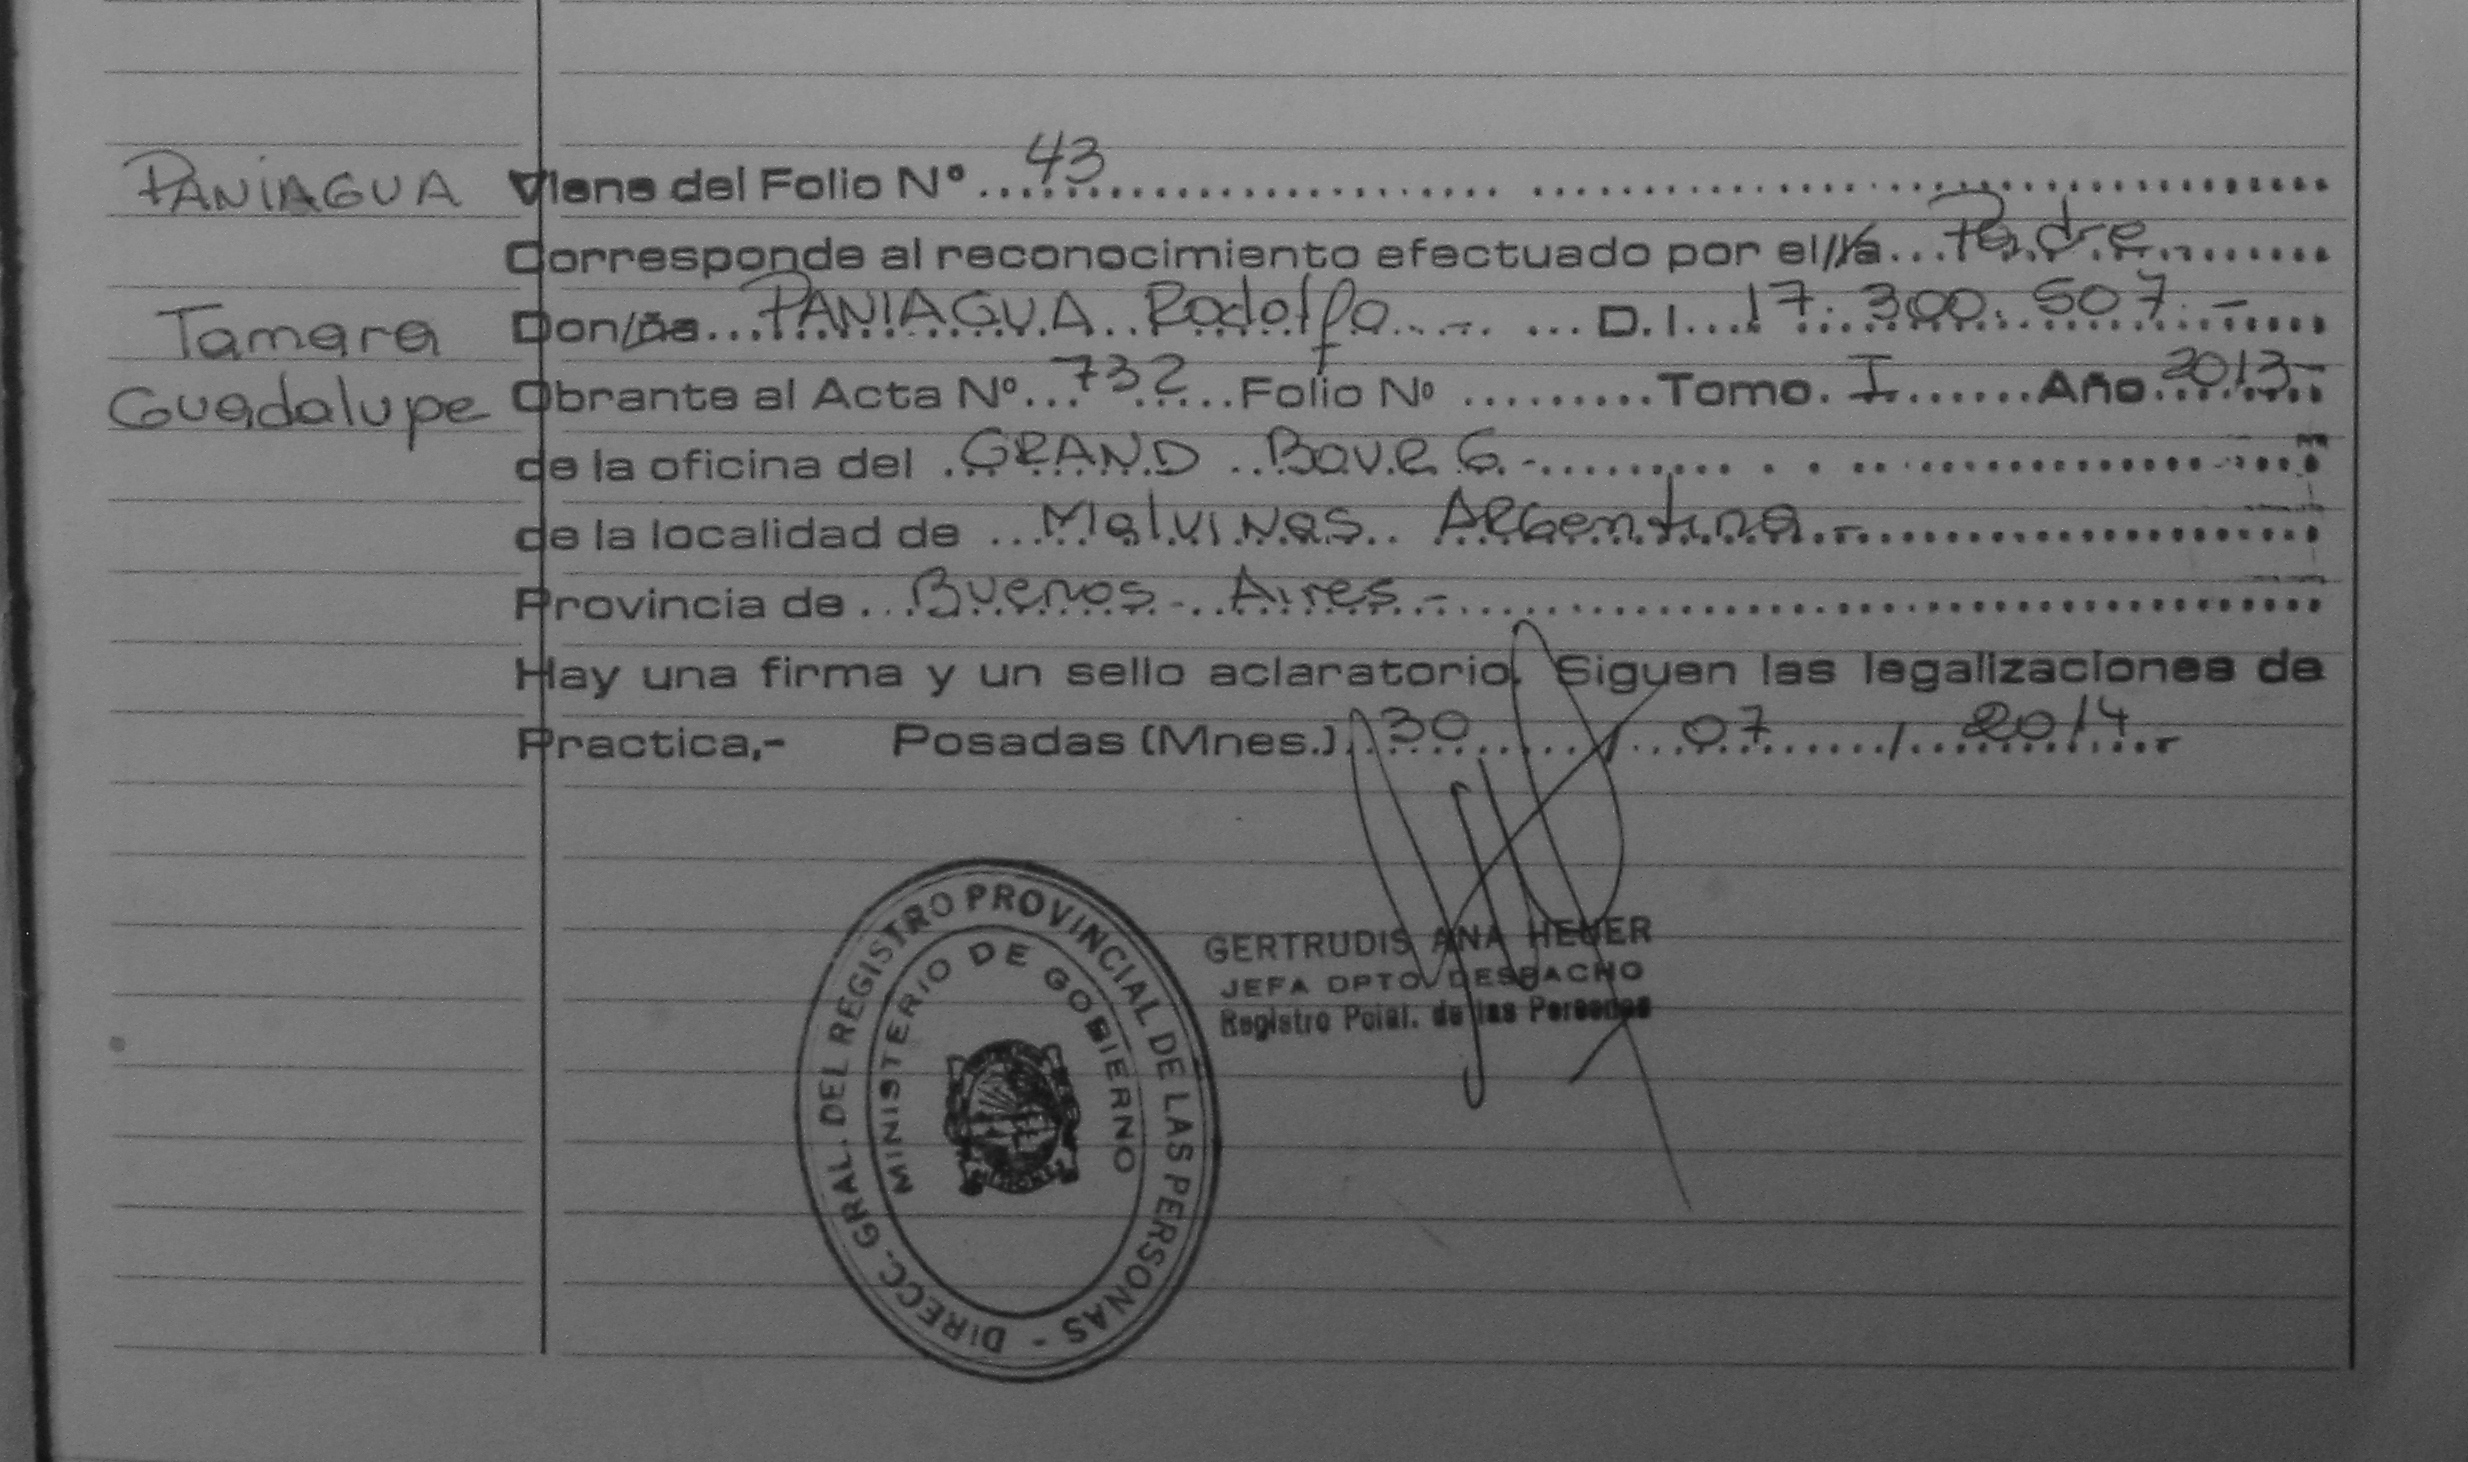 PANIAGUA Viene del Folio Nº 43
Corresponde al reconocimiento efectuado por el/la Padre
Tamara Don/ña PANIAGUA Rodolfo.- D.I. 17.300.507.-
Guadalupe Obrante al Acta Nº 732 Folio Nº Tomo. I Año 2013-
de la oficina del GRAND Bourg.-
de la localidad de Malvinas Argentina.-
Provincia de Buenos Aires.-
Hay una firma y un sello aclaratorio. Siguen las legalizaciones de
Practica,- Posadas (Mnes.) 30 / 07 / 2014.-
GERTRUDIS ANA HEUER
JEFA DPTO DESPACHO
Registro Pcial. de las Personas
DIRECC. GRAL. DEL REGISTRO PROVINCIAL DE LAS PERSONAS -
MINISTERIO DE GOBIERNO